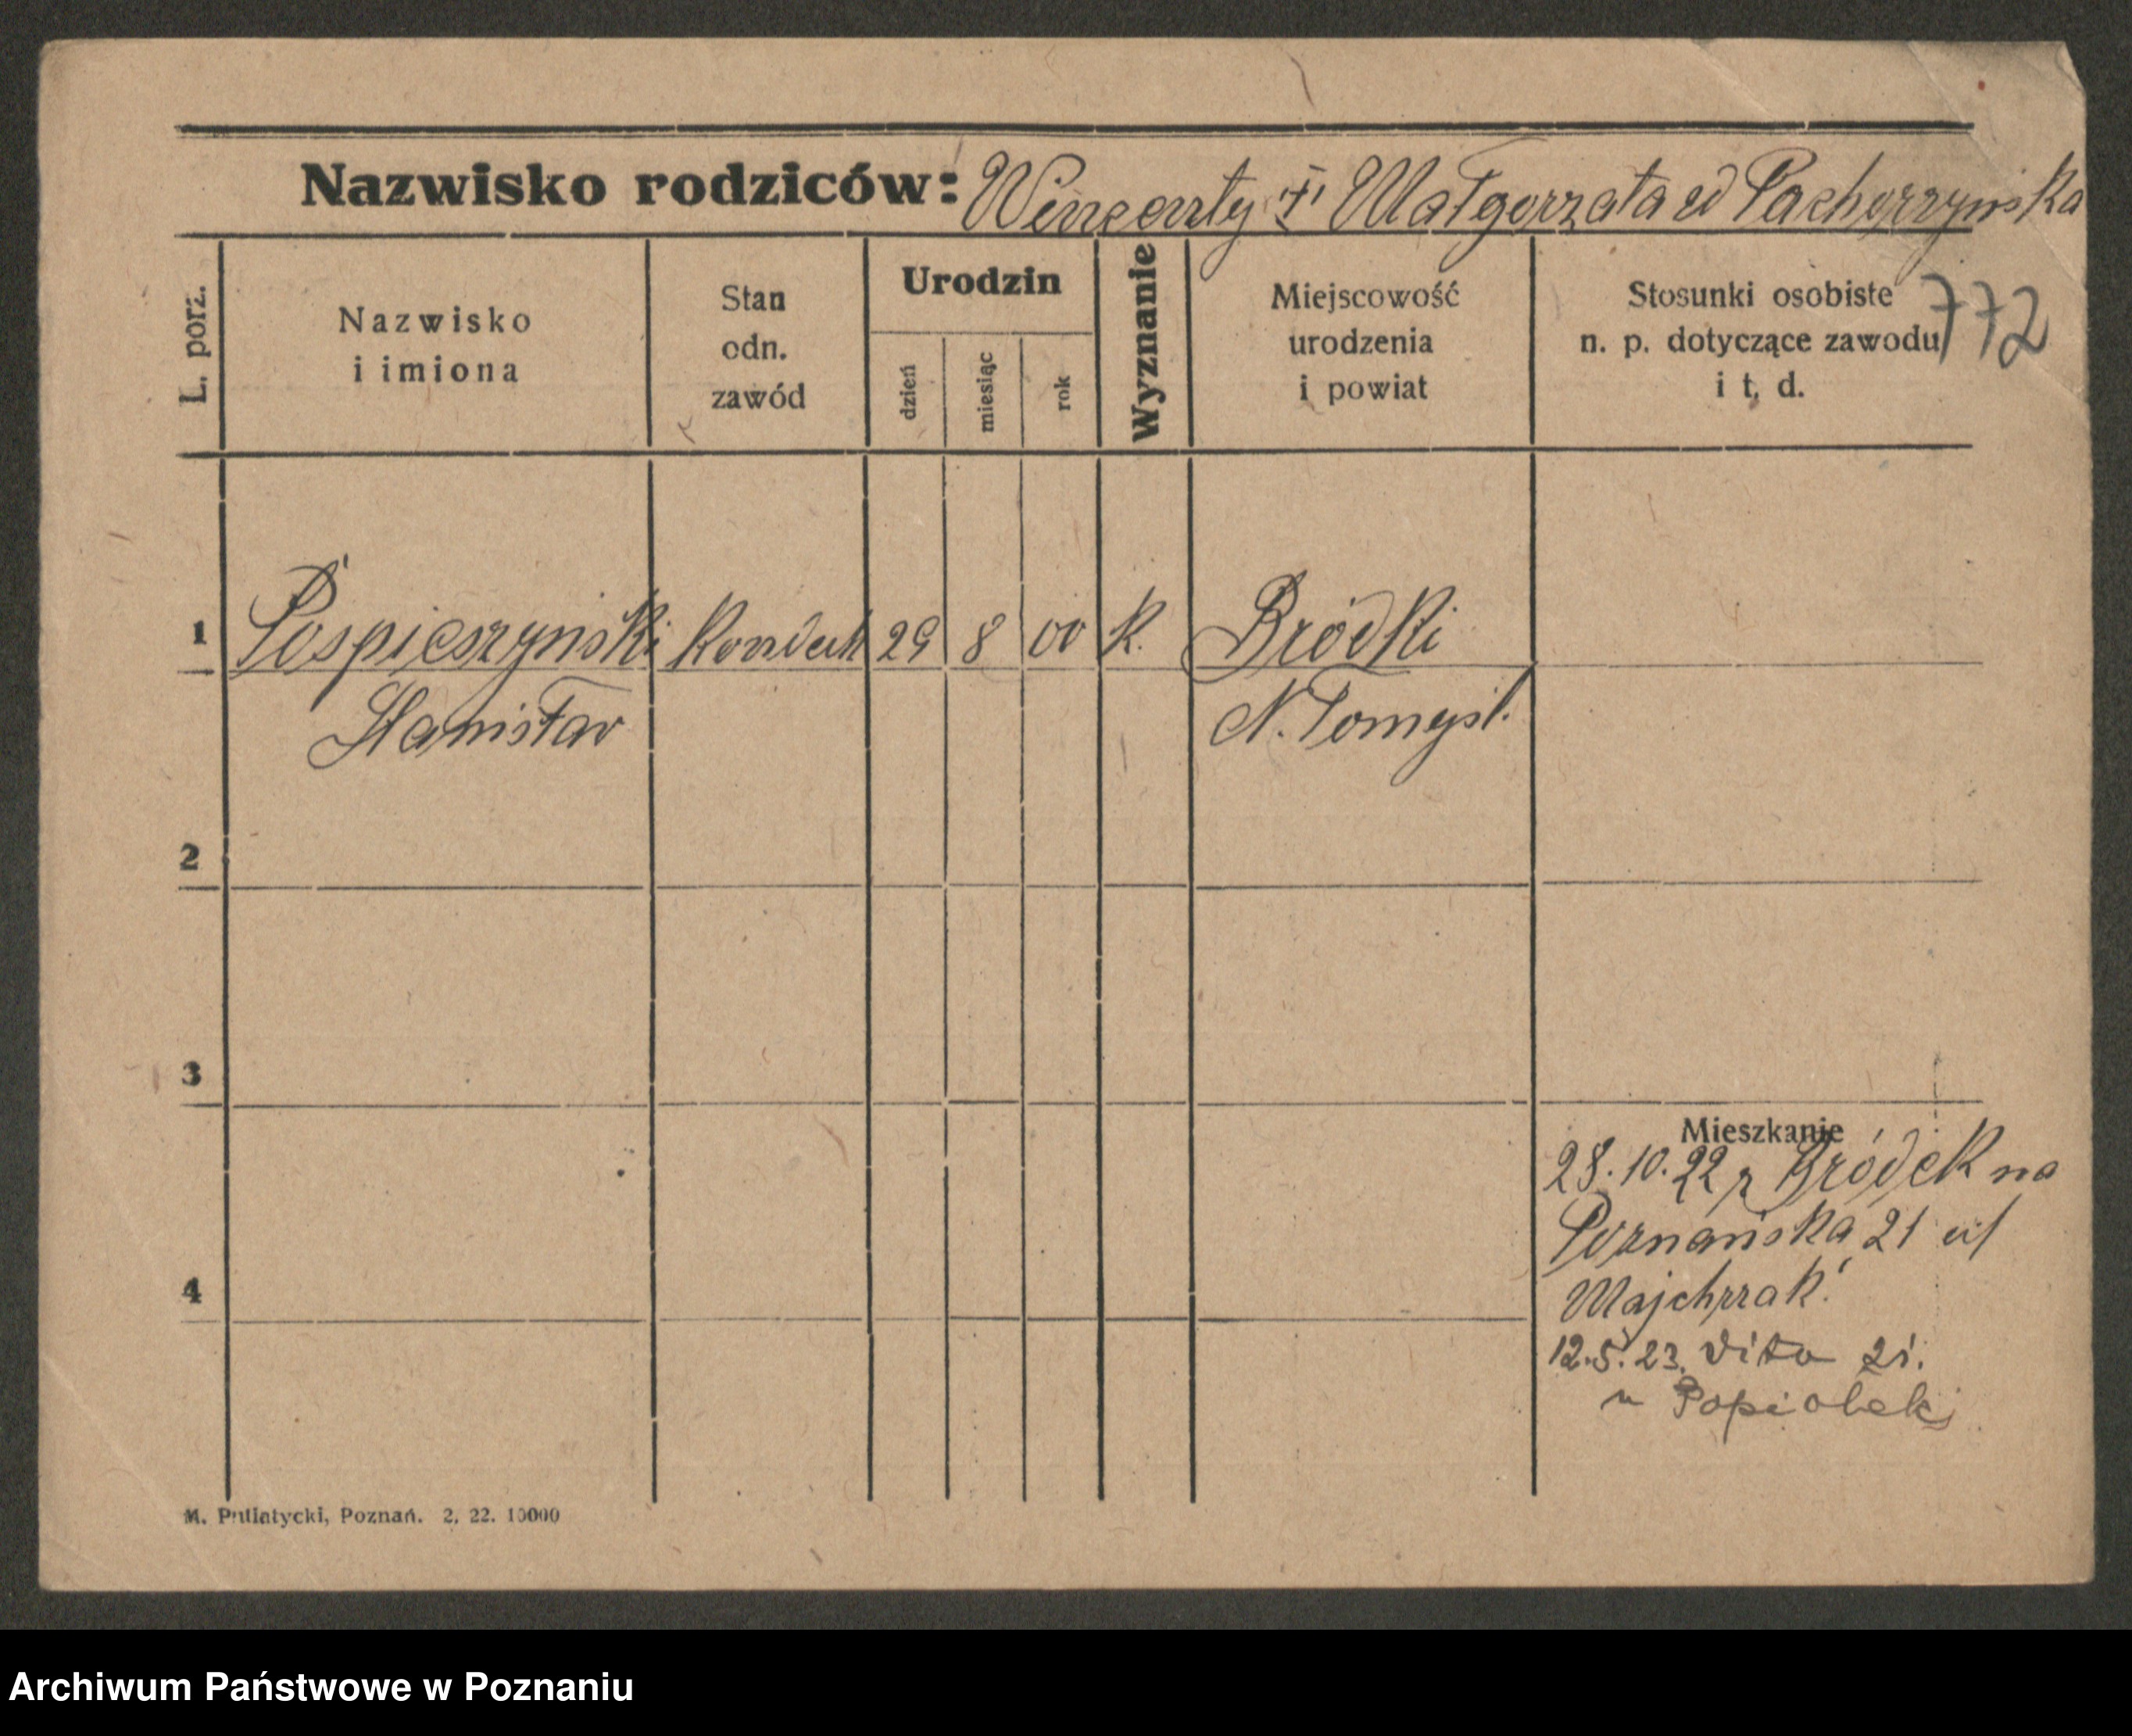 Nazwisko rodziców: Wincenty i Małgorzata
772
L. porz.
Nazwisko
i imiona
Stan
odn.
zawód
Urodzin
dzień
miesiąc
rok
Wyznanie
Miejscowość
urodzenia
i powiat
Stosunki osobiste
n. p. dotyczące zawodu
i t. d.
1 Pospieszyński 29 8 00 K. Bródki
Stanisław N. Tomyśl.
2
3
Mieszkanie
28.10.22 z Bródek na
Poznańska 21
Majchrzak.
4
12.5.23. dito 21.
u Popiołek
M. Putiatycki, Poznań. 2. 22. 10000
Archiwum Państwowe w Poznaniu